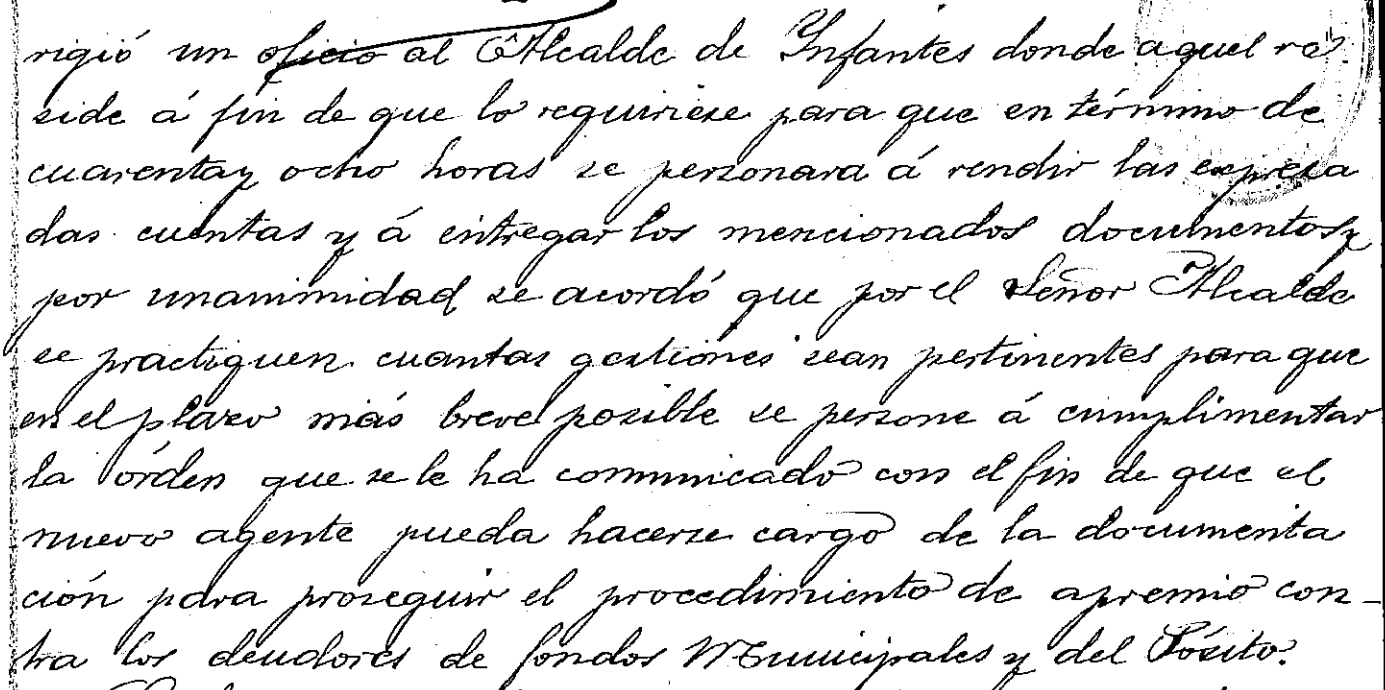 rigió un oficio al Alcalde de Infantes donde aquel re-
side á fin de que lo requiriese para que en término de
cuarenta y ocho horas se personara á rendir las expresa
das cuentas y á entregar los mencionados documentos y
por unanimidad se acordó que por el Señor Alcalde
se practiquen cuantas gestiones sean pertinentes para que
en el plazo más breve posible se persone á cumplimentar
la órden que se le ha comunicado con el fin de que el
nuevo agente pueda hacerse cargo de la documenta
ción para proseguir el procedimiento de apremio con-
tra los deudores de fondos Municipales y del Pósito.